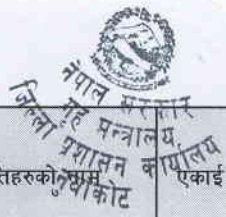 नेपाल सरकार
गृह मन्त्रालय
जिल्ला प्रशासन कार्यालय
नुवाकोट
एकाई